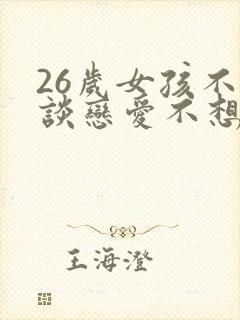 26歲女孩不
談戀愛不想
王海澄